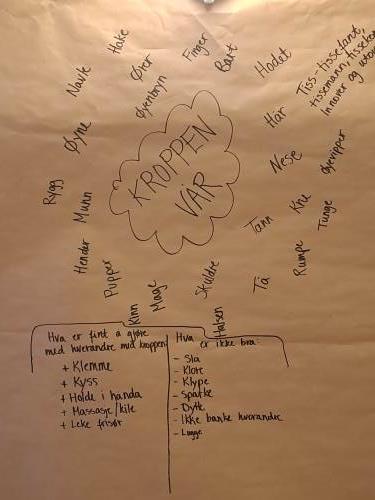 Hake
Finger
Bart
Hodet
Tiss-tissefant,
tissemann, tissekone
Innover og utover
Navle
Ører
Øyenbryn
Hår
Øyne
KROPPEN
VÅR
Nese
Øyevipper
Rygg
Munn
Tann
Kne
Tunge
Hender
Pupper
Kinn
Mage
Skuldre
Halsen
Tå
Rumpe
Hva er fint å gjøre
med hverandre med kroppen
+ Klemme
+ Kyss
+ Holde i handa
+ Massasje/kile
+ Leke frisør
Hva
er ikke bra:
- Slå
- Klore
- Klype
- Sparke
- Dytte
- Ikke banke hverandre
- Lugge